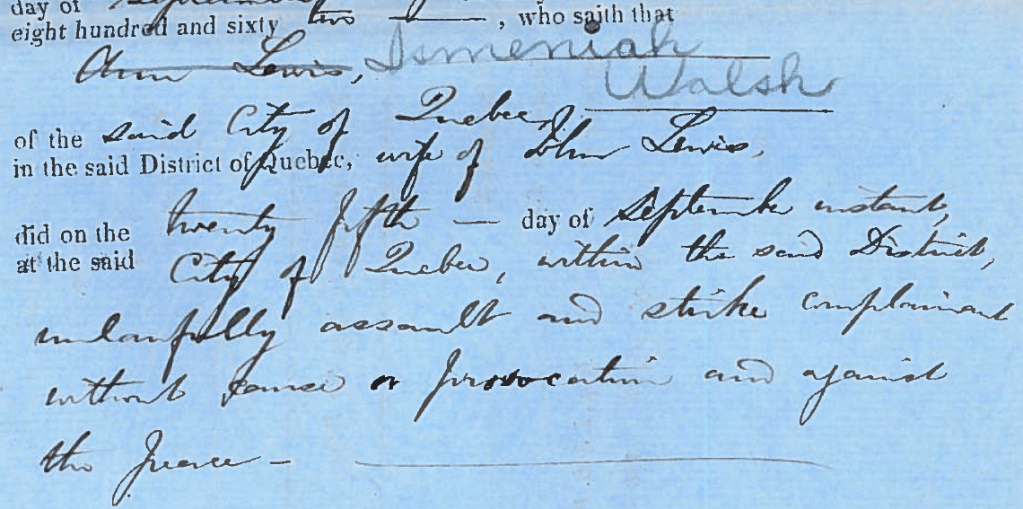 day of September
eight hundred and sixty two ——, who saith that
Ann Lewis, Ismeniah
Walsh
of the said City of Quebec,
in the said District of Quebec, wife of John Lewis,
did on the twenty fifth — day of September instant,
at the said City of Quebec, within the said District,
unlawfully assault and strike complainant
without cause or provocation and against
the peace —